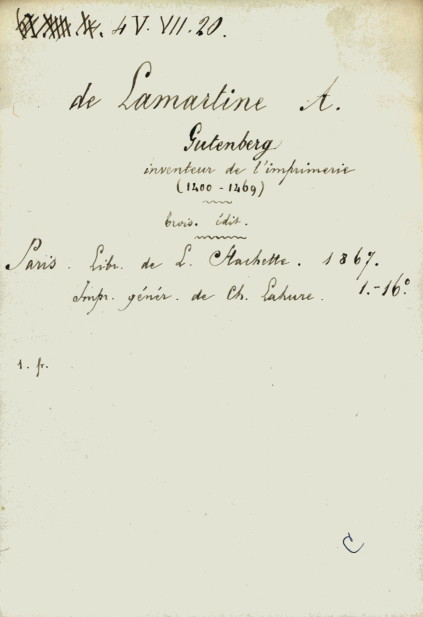 4 V. VII. 20.
de Lamartine A.
Gutenberg
inventeur de l'imprimerie
(1400 - 1469)
trois. édit.
Paris. Libr. de L. Hachette. 1867.
Impr. génér. de Ch. Lahure. 1.-16º
1. fr.
C